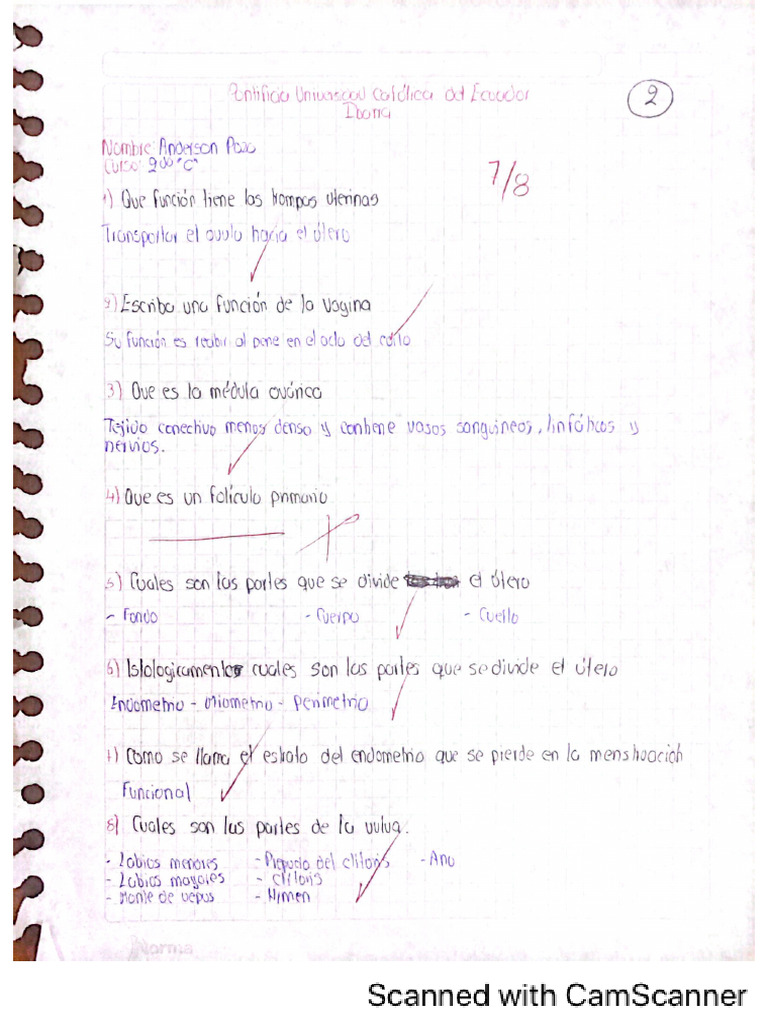 Pontificia Universidad Católica del Ecuador
Ibarra
2
Nombre: Anderson Pozo
Curso: 2do "C"
7/8
1) Que función tiene las trompas uterinas
Transportar el ovulo hacia el útero
2) Escriba una función de la vagina
Su función es recibir al pene en el acto del coito
3) Que es la médula ovárica
Tejido conectivo menos denso y contiene vasos sanguineos, linfáticos y
nervios.
4) Que es un folículo primario
5) Cuales son las partes que se divide el útero
- Fondo - Cuerpo - Cuello
6) Islologicamente cuales son las partes que se divide el útero
Endometrio - Miometrio - Perimetrio
7) Como se llama el estrato del endometrio que se pierde en la menstruación
Funcional
8) Cuales son las partes de la vulva.
- Labios menores - Prepucio del clítoris - Ano
- Labios mayores - clítoris
- Monte de venus - Himen
Norma
Scanned with CamScanner